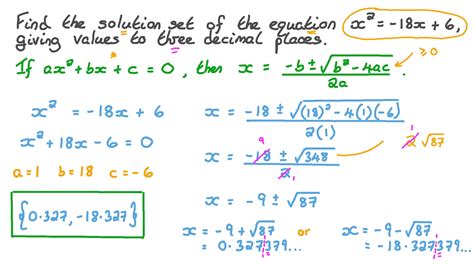 Find the solution set of the equation x² = -18x + 6,
giving values to three decimal places.
≥0
If ax² + bx + c = 0, then x = (-b ± √(b² - 4ac))/2a.
x² = -18x + 6
x² + 18x - 6 = 0
a = 1 b = 18 c = -6
{0.327, -18.327}
x = (-18 ± √((18)² - 4(1)(-6)))/2(1)
x = (-18 ± √348)/2
9
1
1
2√87
x = -9 ± √87
x = -9 + √87 or x = -9 - √87
= 0.327379... = -18.327379...